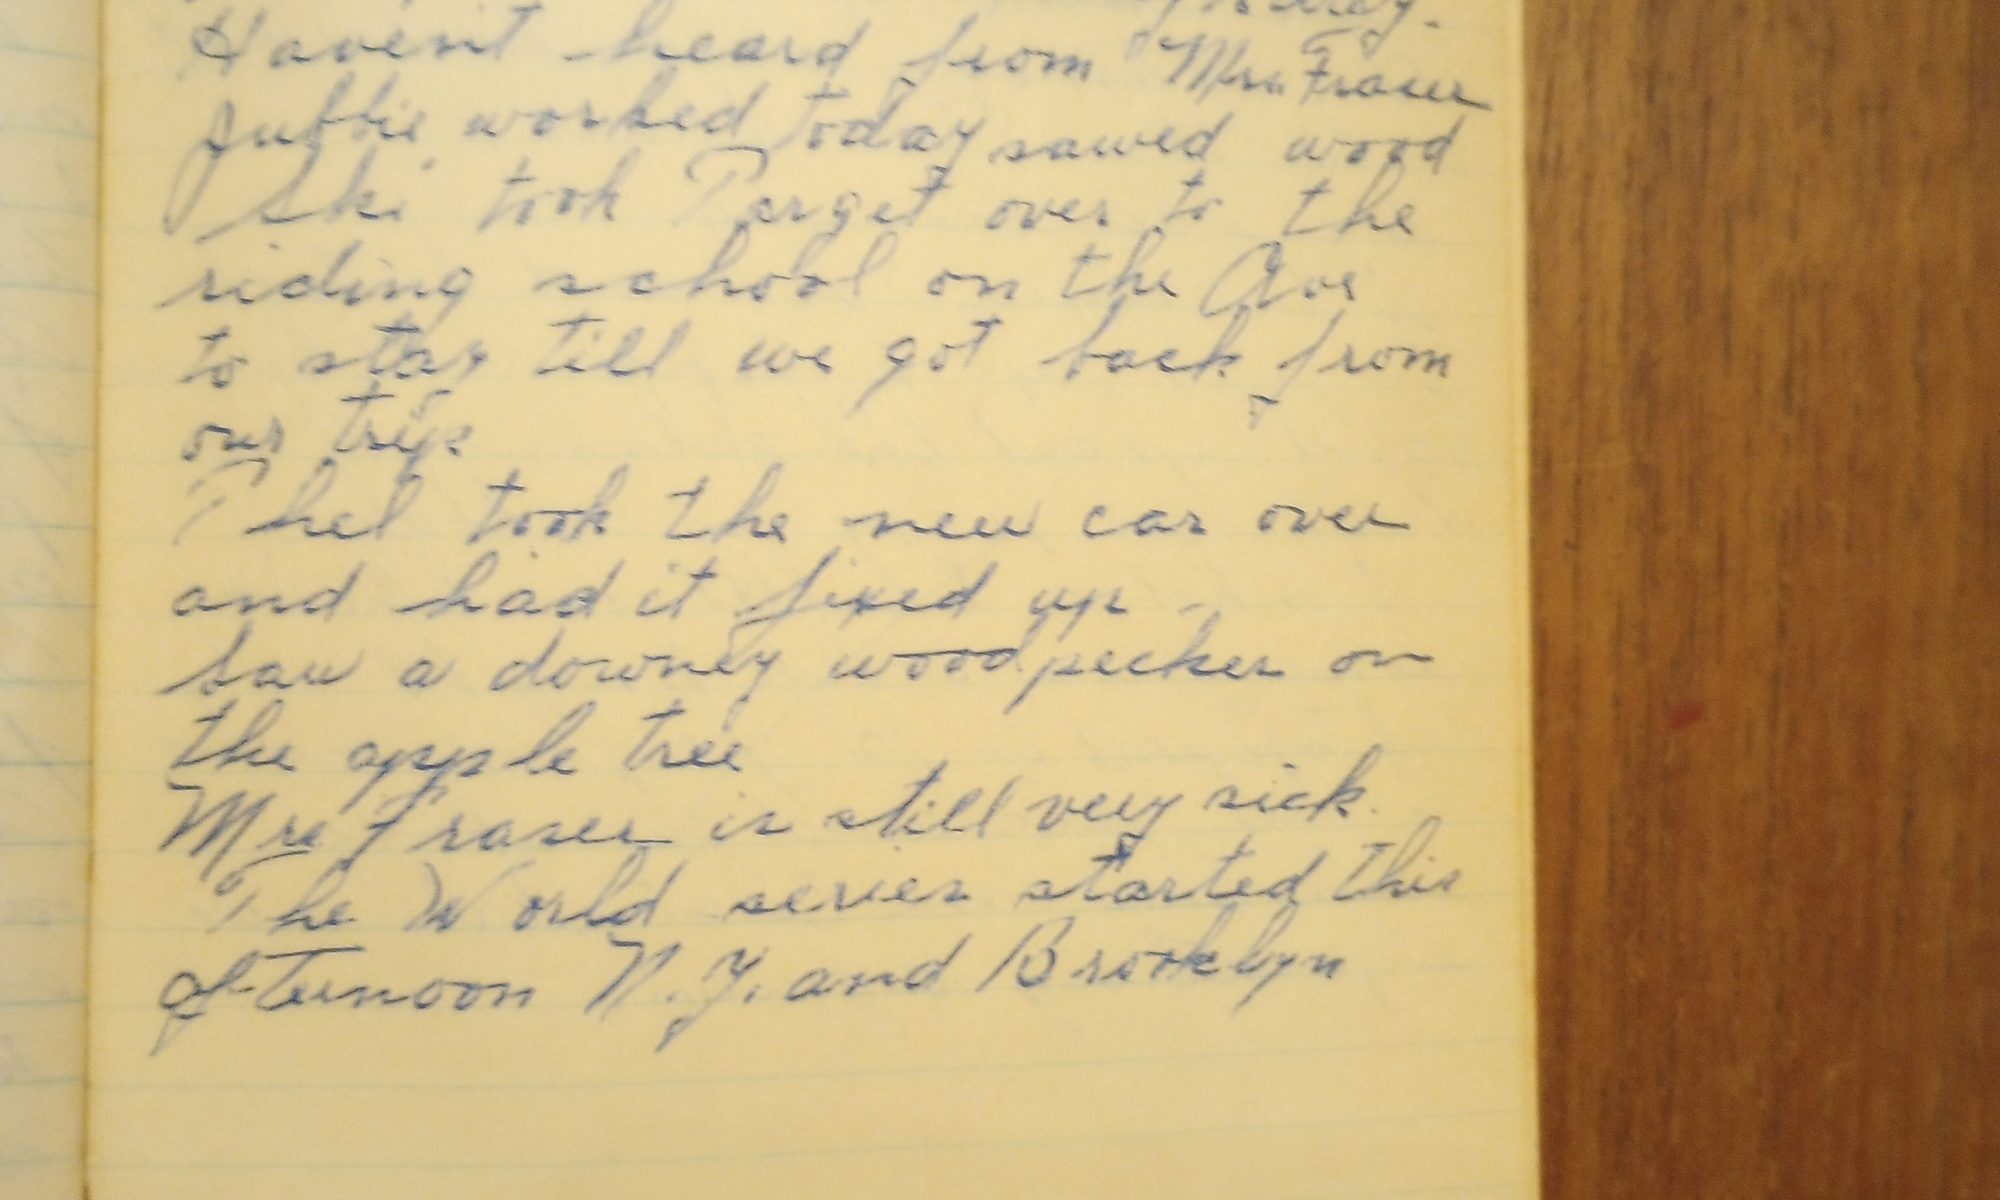 Haven't heard from Mrs. Fraser
Jubbie worked today sawed wood
Ski took Target over to the
riding school on the Ave
to stay till we got back from
our trip
Thel took the new car over
and had it fixed up -
Saw a downey woodpecker on
the apple tree
Mrs Fraser is still very sick.
The World series started this
afternoon N.Y. and Brooklyn